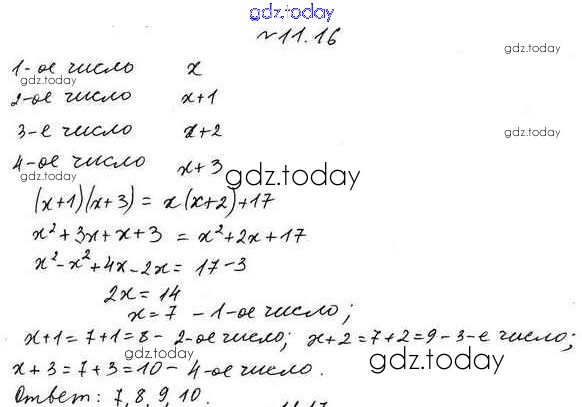 gdz.today
№11.16
gdz.today
1-ое число x
gdz.today
2-ое число x+1
3-е число x+2
gdz.today
4-ое число x+3
gdz.today
gdz.today
(x+1)(x+3) = x(x+2)+17
x²+3x+x+3 = x²+2x+17
x²-x²+4x-2x = 17-3
2x = 14
x = 7 - 1-ое число;
x+1 = 7+1 = 8 - 2-ое число; x+2 = 7+2 = 9 - 3-е число;
gdz.today
gdz.today
x+3 = 7+3 = 10 - 4-ое число.
Ответ: 7, 8, 9, 10.